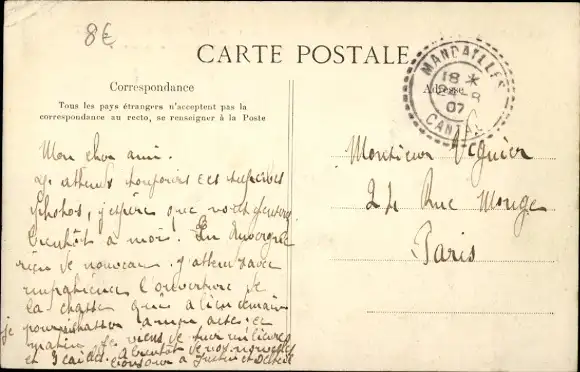 8€
CARTE POSTALE
Correspondance
Tous les pays étrangers n'acceptent pas la
correspondance au recto, se renseigner à la Poste
Adresse
MANDAILLES
18 *
24 - 8
07
CANTAL
Mon cher ami.
J'attends toujours ces superbes
photos, j'espère que
bientôt à moi. En Auvergne
rien de nouveau. j'attend avec
impatience l'ouverture de
la chasse qui a lieu demain
je
matin. Je viens de tuer
et A bientôt de vos nouvelles
bonjour à et
Monsieur
24 Rue Monge
Paris